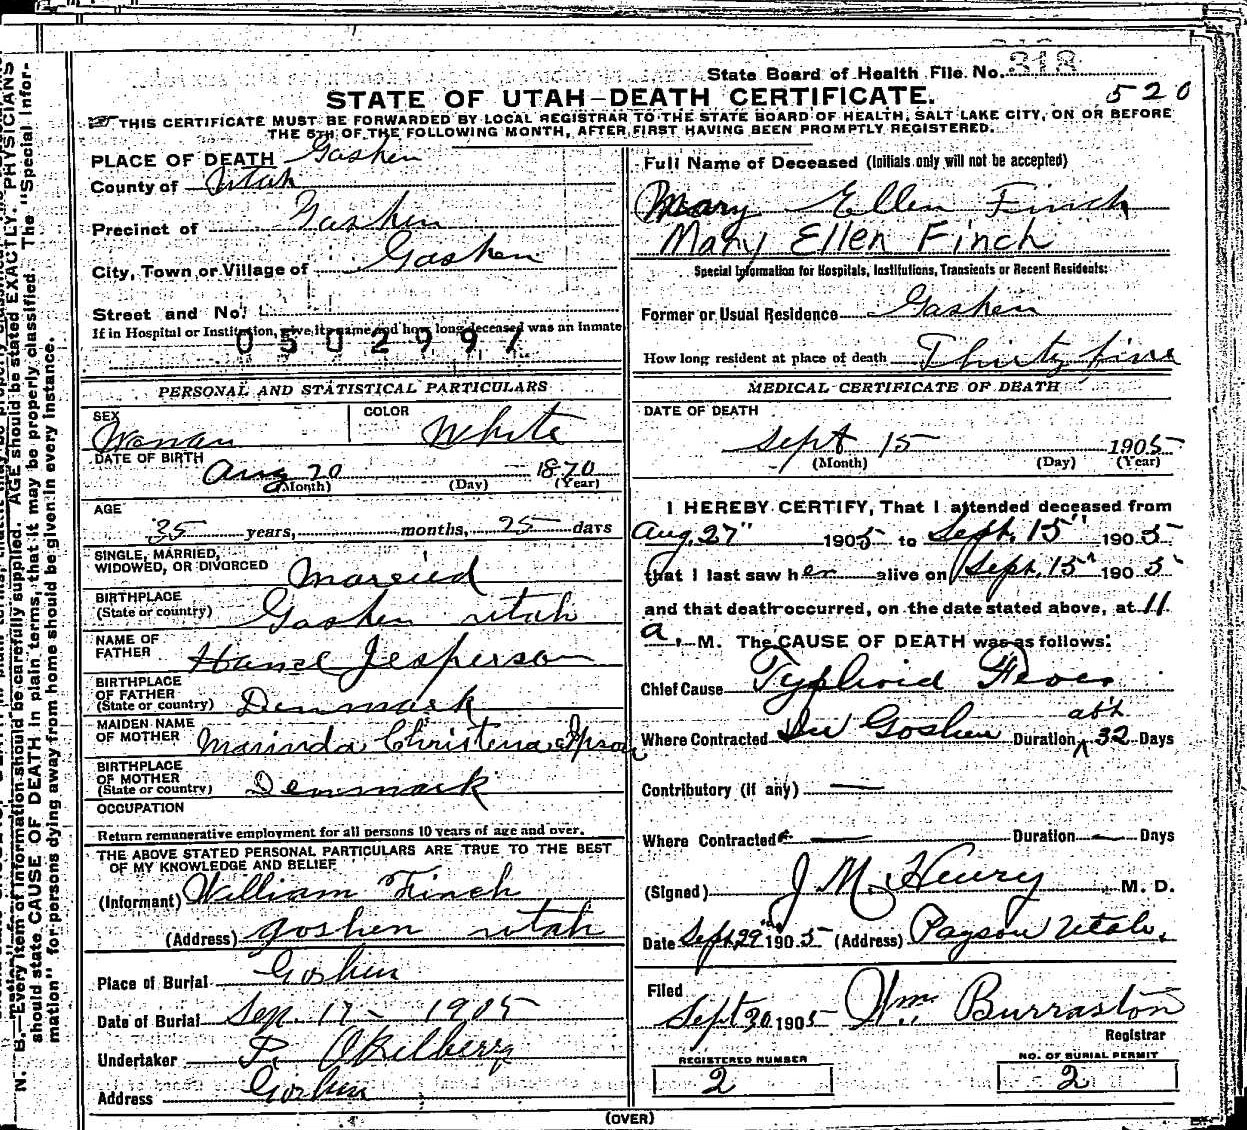 State Board of Health File No. 318
520
STATE OF UTAH—DEATH CERTIFICATE.
THIS CERTIFICATE MUST BE FORWARDED BY LOCAL REGISTRAR TO THE STATE BOARD OF HEALTH, SALT LAKE CITY, ON OR BEFORE
THE 5TH OF THE FOLLOWING MONTH, AFTER FIRST HAVING BEEN PROMPTLY REGISTERED.
PLACE OF DEATH Gashen
County of Utah
Precinct of Gashen
City, Town or Village of Gashen
Street and No.
If in Hospital or Institution, give its name and how long deceased was an Inmate
0502997
PERSONAL AND STATISTICAL PARTICULARS
SEX Woman COLOR White
DATE OF BIRTH Aug 20 1870
(Month) (Day) (Year)
AGE
35 years, months, 25 days
SINGLE, MARRIED,
WIDOWED, OR DIVORCED Married
BIRTHPLACE
(State or country) Gashen utah
NAME OF
FATHER Hance Jesperson
BIRTHPLACE
OF FATHER
(State or country) Denmark
MAIDEN NAME
OF MOTHER Marinda Christena Ipson
BIRTHPLACE
OF MOTHER
(State or country) Denmark
OCCUPATION
Return remunerative employment for all persons 10 years of age and over.
THE ABOVE STATED PERSONAL PARTICULARS ARE TRUE TO THE BEST
OF MY KNOWLEDGE AND BELIEF
(Informant) William Finch
(Address) goshen utah
Place of Burial Goshen
Date of Burial Sep. 17 - 1905
Undertaker P. Okelberry
Address Goshen
Full Name of Deceased (Initials only will not be accepted)
Mary Ellen Finch
Mary Ellen Finch
Special Information for Hospitals, Institutions, Transients or Recent Residents:
Former or Usual Residence Gashen
How long resident at place of death Thirty five
MEDICAL CERTIFICATE OF DEATH
DATE OF DEATH
Sept 15 1905
(Month) (Day) (Year)
I HEREBY CERTIFY, That I attended deceased from
Aug. 27" 1905 to Sept. 15" 1905
that I last saw her alive on Sept. 15" 1905
and that death occurred, on the date stated above, at 11
a. M. The CAUSE OF DEATH was as follows:
Chief Cause Typhoid Fever
Where Contracted In Goshen Duration abt 32 Days
Contributory (if any) —
Where Contracted — Duration — Days
(Signed) J M. Henry M. D.
Date Sept 29" 1905 (Address) Payson Utah.
Filed
Sept 30 1905 Wm. Burraston
Registrar
REGISTERED NUMBER
2
NO. OF BURIAL PERMIT
2
(OVER)
N. B.—Every item of information should be carefully supplied. AGE should be stated EXACTLY. PHYSICIANS
should state CAUSE OF DEATH in plain terms, that it may be properly classified. The "Special Infor-
mation" for persons dying away from home should be given in every instance.